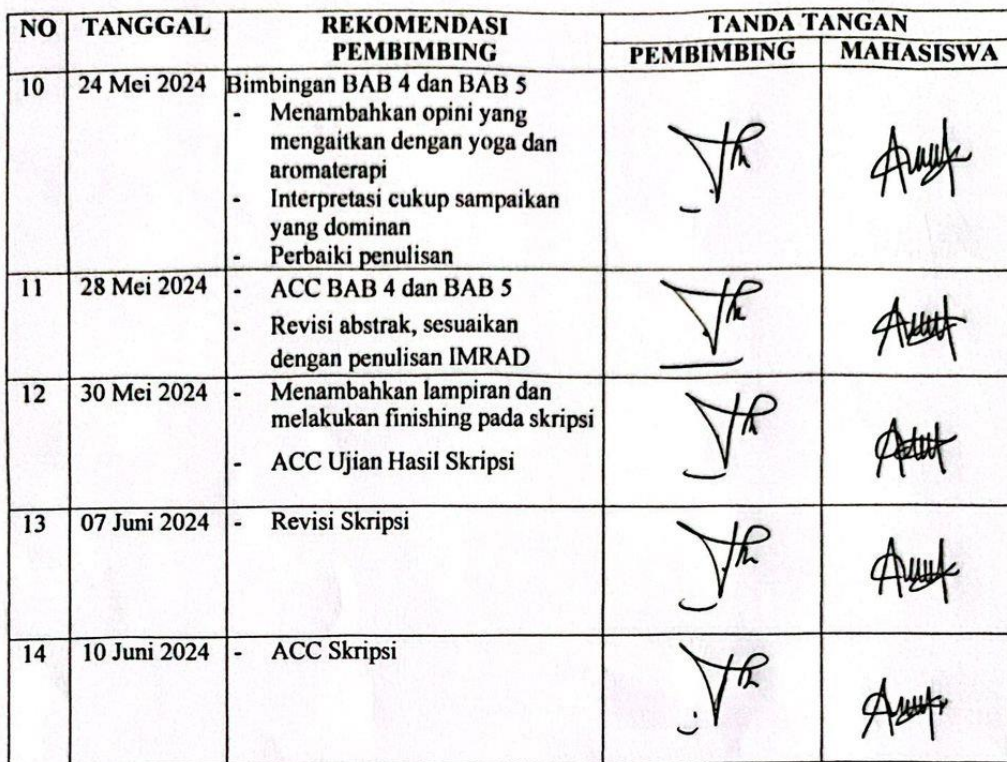 NO TANGGAL REKOMENDASI PEMBIMBING TANDA TANGAN
PEMBIMBING MAHASISWA
10 24 Mei 2024 Bimbingan BAB 4 dan BAB 5
- Menambahkan opini yang
mengaitkan dengan yoga dan
aromaterapi
- Interpretasi cukup sampaikan
yang dominan
- Perbaiki penulisan
11 28 Mei 2024 - ACC BAB 4 dan BAB 5
- Revisi abstrak, sesuaikan
dengan penulisan IMRAD
12 30 Mei 2024 - Menambahkan lampiran dan
melakukan finishing pada skripsi
- ACC Ujian Hasil Skripsi
13 07 Juni 2024 - Revisi Skripsi
14 10 Juni 2024 - ACC Skripsi